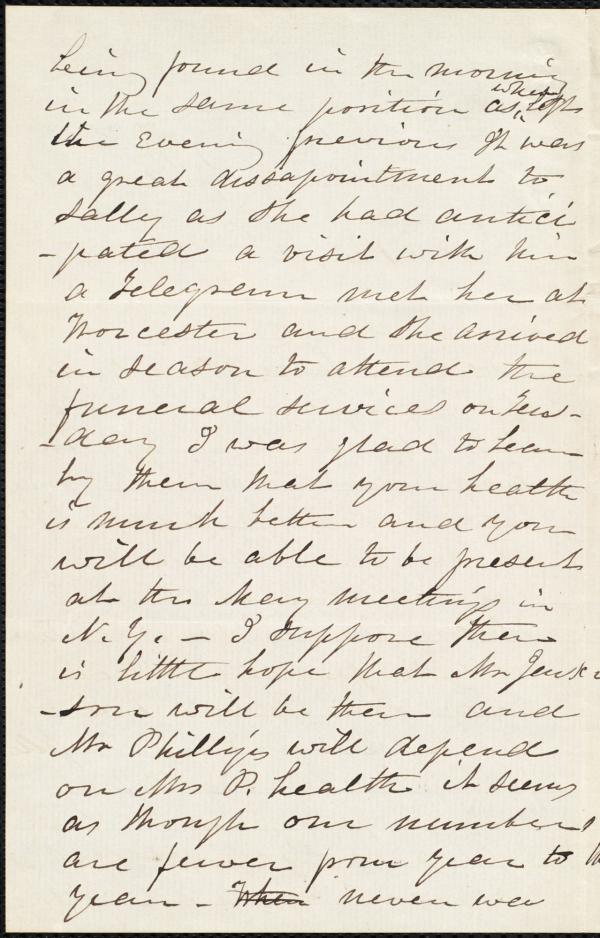 being found in the morning
in the same position as when left
the Evening previous It was
a great dissapointment to
Sally as she had antici
-pated a visit with him
a Telegram met her at
Worcester and she arrived
in season to attend the
funeral services on Tues-
-day I was glad to learn
by them that your health
is much better and you
will be able to be present
at the May meetings in
N.Y. – I suppose there
is little hope that Mr Jenki
-son will be there and
Mr Phillips will depend
on Mrs P. health it seems
as though our numbers
are fewer from year to
year – When never was